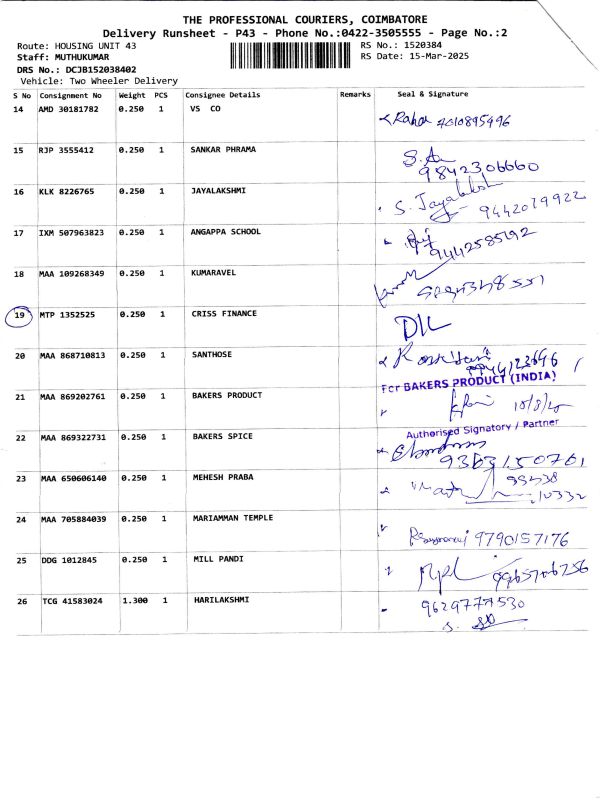 THE PROFESSIONAL COURIERS, COIMBATORE
Delivery Runsheet - P43 - Phone No.:0422-3505555 - Page No.:2
Route: HOUSING UNIT 43 RS No.: 1520384
Staff: MUTHUKUMAR RS Date: 15-Mar-2025
DRS No.: DCJB152038402
Vehicle: Two Wheeler Delivery
S No Consignment No Weight PCS Consignee Details Remarks Seal & Signature
14 AMD 30181782 0.250 1 VS CO
15 RJP 3555412 0.250 1 SANKAR PHRAMA
9842306660
16 KLK 8226765 0.250 1 JAYALAKSHMI
9442079922
17 IXM 507963823 0.250 1 ANGAPPA SCHOOL
9442585192
18 MAA 109268349 0.250 1 KUMARAVEL
19 MTP 1352525 0.250 1 CRISS FINANCE
20 MAA 868710813 0.250 1 SANTHOSE
For BAKERS PRODUCT (INDIA)
21 MAA 869202761 0.250 1 BAKERS PRODUCT
Authorised Signatory / Partner
22 MAA 869322731 0.250 1 BAKERS SPICE
9363150761
23 MAA 650606140 0.250 1 MEHESH PRABA
24 MAA 705884039 0.250 1 MARIAMMAN TEMPLE
9790157176
25 DDG 1012845 0.250 1 MILL PANDI
26 TCG 41583024 1.300 1 HARILAKSHMI
9629777530